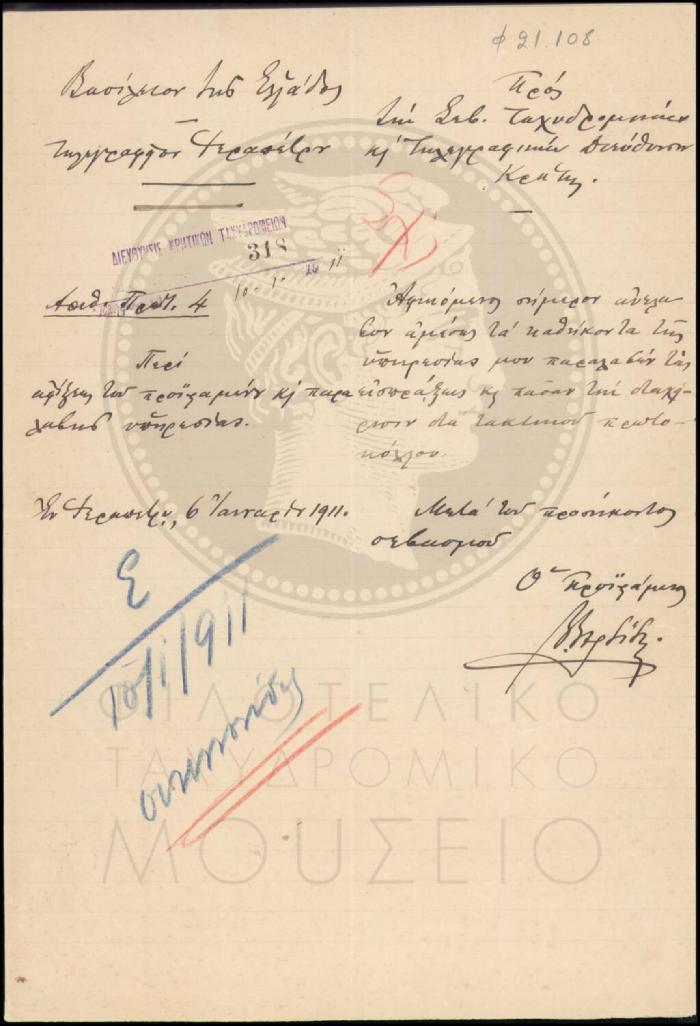 φ 21.108
Βασίλειον της Ελλάδος
Τηλεγραφείον Ιεραπέτρου
Πρός
την Σεβ. Ταχυδρομικήν
κ Τηλεγραφικήν Διεύθυνσιν
Κρήτης.
ΔΙΕΥΘΥΝΣΙΣ ΚΡΗΤΙΚΩΝ ΤΑΧΥΔΡΟΜΕΙΩΝ
318
10-1- 19 11
Αριθ. Πρωτ. 4
Περί
αφίξεως του προϊσταμένου κ παρα
λαβής υπηρεσίας.
Αφικόμενος σήμερον ανέλα
βον αμέσως τα καθήκοντα της
υπηρεσίας μου παραλαβών τας
εισπράξεις κ πάσαν την διαχεί
ρισιν δια τακτικού πρωτο
κόλλου.
Εν Ιεραπέτρω, 6 Ιανουαρίου 1911.
Μετά του προσήκοντος
σεβασμού
Ο Προϊστάμενος
Ε
10/1/911
ΦΙΛΟΤΕΛΙΚΟ
ΤΑΧΥΔΡΟΜΙΚΟ
ΜΟΥΣΕΙΟ